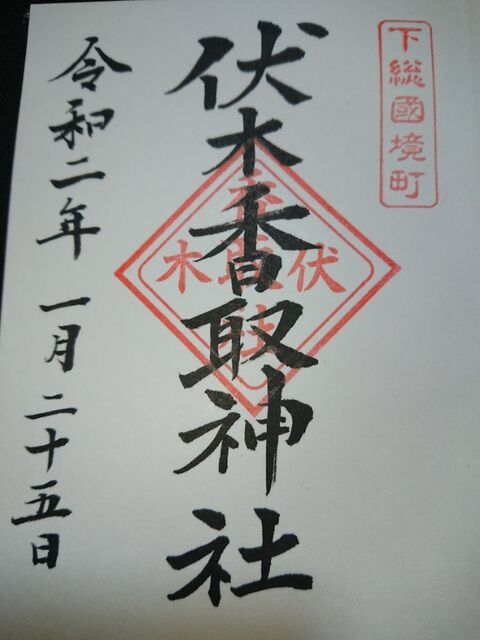 下総國境町
伏木香取神社
伏木
令和二年一月二十五日